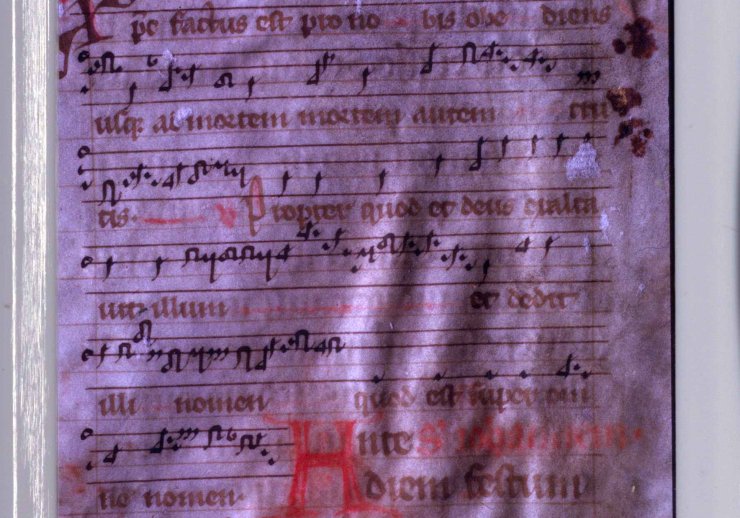 pc factus est pro no bis obe diens
usq; ad mortem mortem autem cru
cis. Propter quod et deus exalta
uit illum et dedit
illi nomen quod est super om
ne nomen. Ante
diem festum